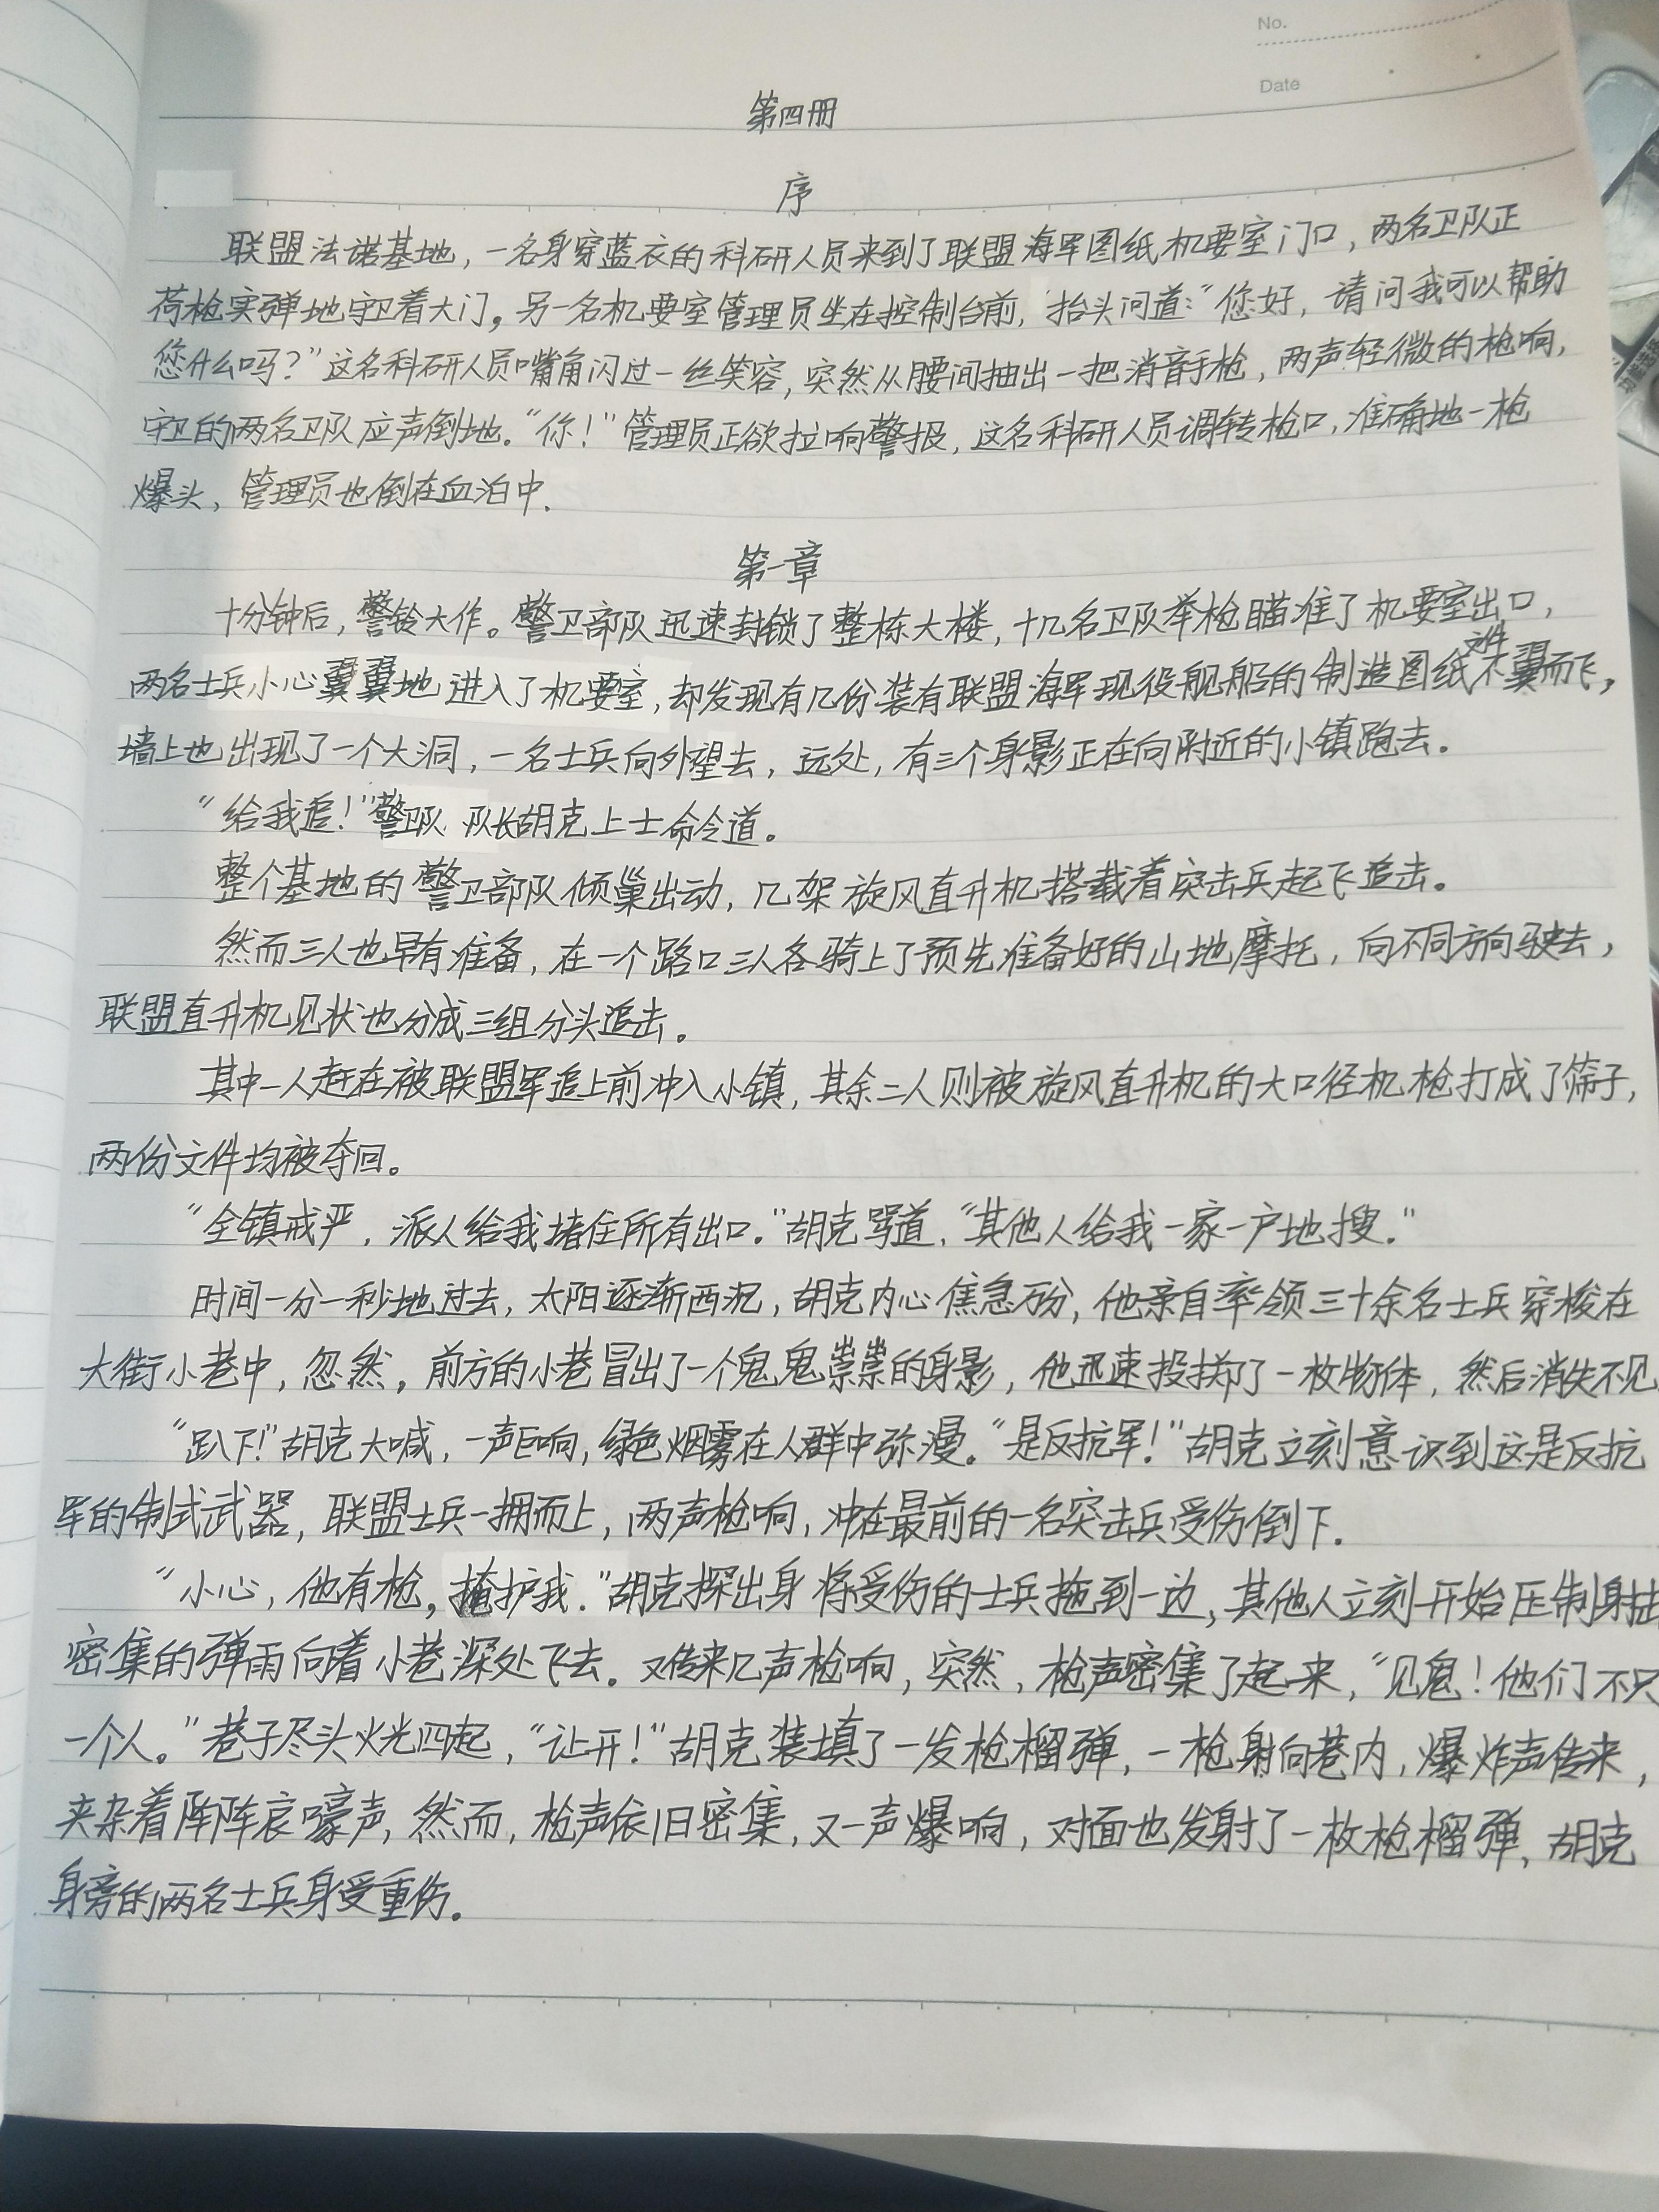 No.
Date
第四册
序
联盟法诺基地，一名身穿蓝衣的科研人员来到了联盟海军图纸机要室门口，两名卫队正
荷枪实弹地守卫着大门，另一名机要室管理员坐在控制台前，抬头问道：“您好，请问我可以帮助
您什么吗？”这名科研人员嘴角闪过一丝笑容，突然从腰间抽出一把消音手枪，两声轻微的枪响，
守卫的两名卫队应声倒地。“你！”管理员正欲拉响警报，这名科研人员调转枪口，准确地一枪
爆头，管理员也倒在血泊中.
第一章
十分钟后，警铃大作。警卫部队迅速封锁了整栋大楼，十几名卫队举枪瞄准了机要室出口，
文件
两名士兵小心翼翼地进入了机要室，却发现有几份装有联盟海军现役舰船的制造图纸不翼而飞，
墙上也出现了一个大洞，一名士兵向外望去，远处，有三个身影正在向附近的小镇跑去。
“给我追！”警卫队队长胡克上士命令道。
整个基地的警卫部队倾巢出动，几架旋风直升机搭载着突击兵起飞追击。
然而三人也早有准备，在一个路口三人各骑上了预先准备好的山地摩托，向不同方向驶去，
联盟直升机见状也分成三组分头追击。
其中一人赶在被联盟军追上前冲入小镇，其余二人则被旋风直升机的大口径机枪打成了筛子，
两份文件均被夺回。
“全镇戒严，派人给我堵住所有出口。”胡克骂道，“其他人给我一家一户地搜.”
时间一分一秒地过去，太阳逐渐西沉，胡克内心焦急万分，他亲自率领三十余名士兵穿梭在
大街小巷中，忽然，前方的小巷冒出了一个鬼鬼祟祟的身影，他迅速投掷了一枚物体，然后消失不见
“趴下！”胡克大喊，一声巨响，绿色烟雾在人群中弥漫。“是反抗军！”胡克立刻意识到这是反抗
军的制式武器，联盟士兵一拥而上，两声枪响，冲在最前的一名突击兵受伤倒下.
“小心，他有枪，掩护我.”胡克探出身将受伤的士兵拖到一边，其他人立刻开始压制射击
密集的弹雨向着小巷深处飞去。又传来几声枪响，突然，枪声密集了起来，“见鬼！他们不只
一个人。”巷子尽头火光四起，“让开！”胡克装填了一发枪榴弹，一枪射向巷内，爆炸声传来，
夹杂着阵阵哀嚎声，然而，枪声依旧密集，又一声爆响，对面也发射了一枚枪榴弹，胡克
身旁的两名士兵身受重伤。